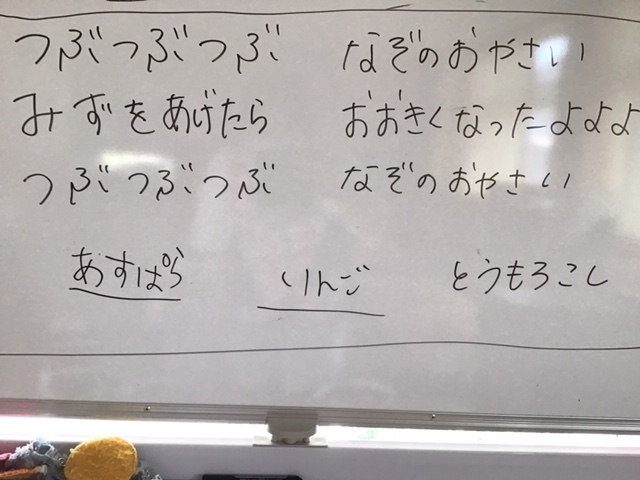 つぶつぶつぶ　なぞのおやさい
みずをあげたら　おおきくなったーよよよ
つぶつぶつぶ　なぞのおやさい
あすぱら　りんご　とうもろこし